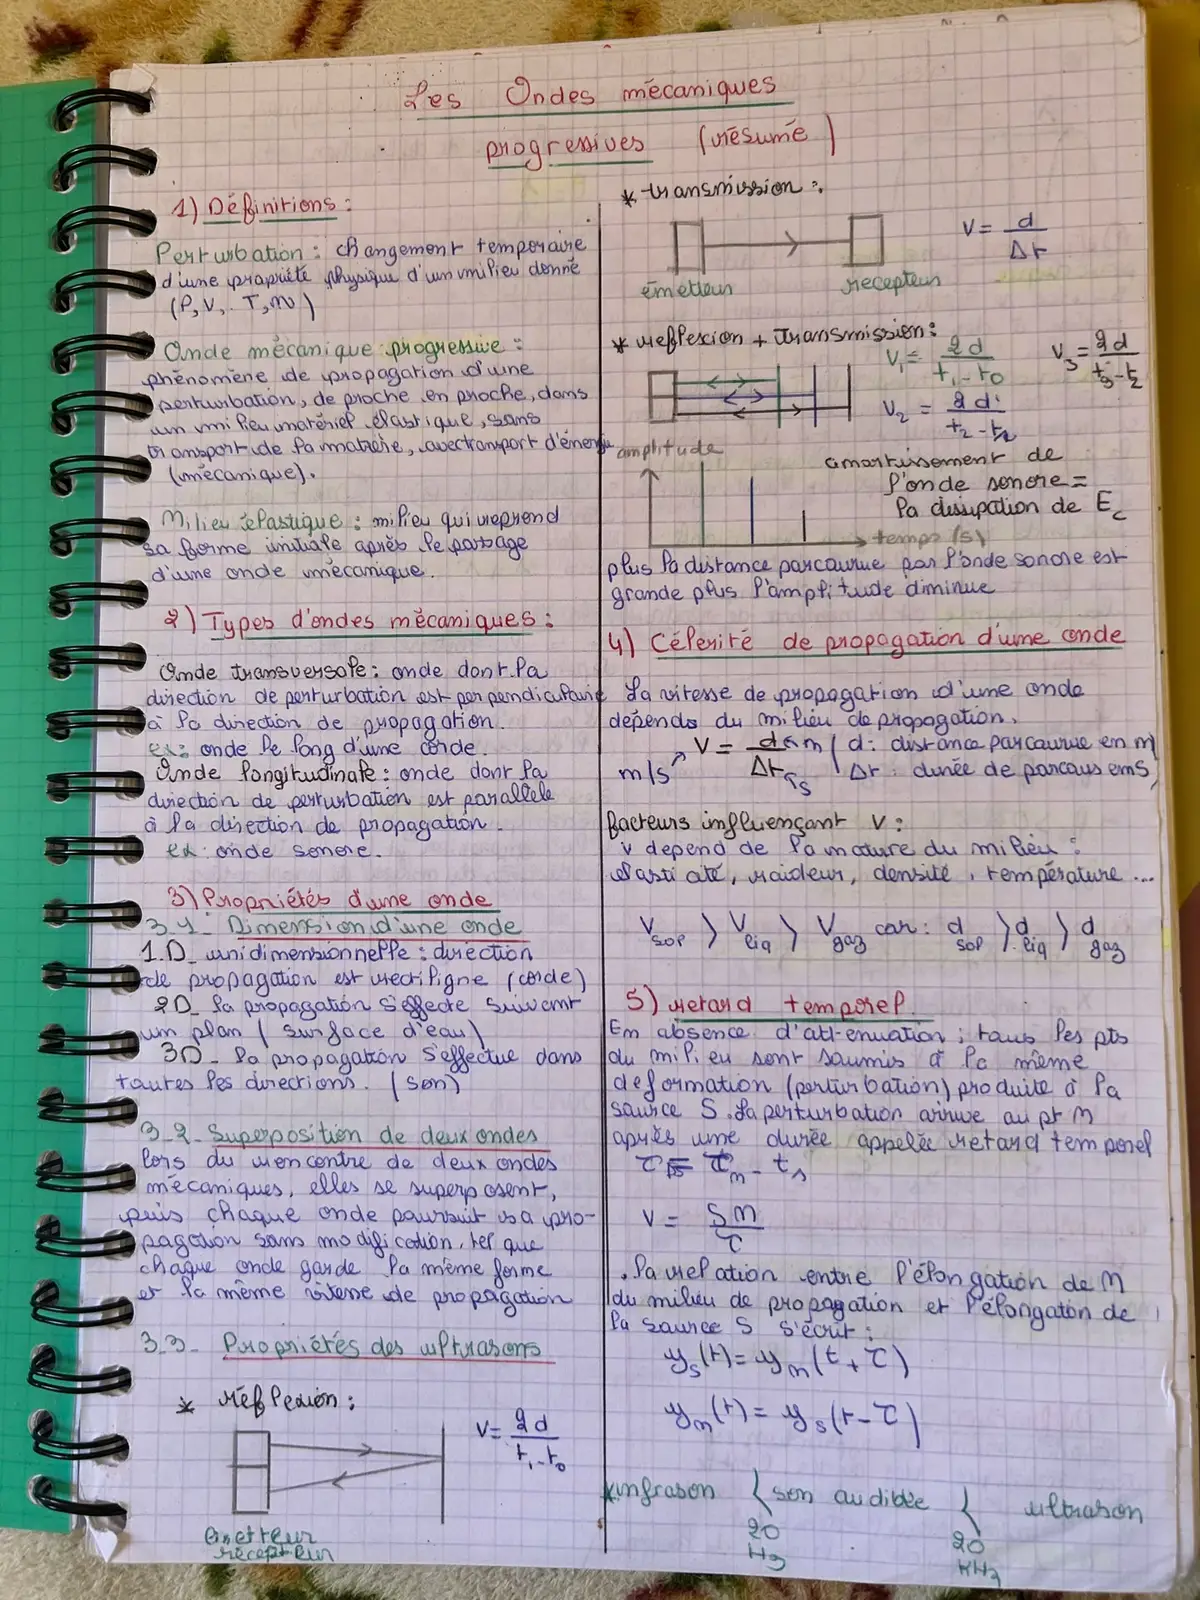 Les Ondes mécaniques
progressives (résumé)
1) Définitions :
Perturbation : changement temporaire
d'une propriété physique d'un milieu donné
(P, V, T, m)
Onde mécanique progressive :
phénomène de propagation d'une
perturbation, de proche en proche, dans
un milieu matériel élastique, sans
transport de la matière, avec transport d'énergie
(mécanique).
Milieu élastique : milieu qui reprend
sa forme initiale après le passage
d'une onde mécanique.
2) Types d'ondes mécaniques :
Onde transversale : onde dont la
direction de perturbation est perpendiculaire
à la direction de propagation.
ex : onde le long d'une corde.
Onde longitudinale : onde dont la
direction de perturbation est parallèle
à la direction de propagation.
ex : onde sonore.
3) Propriétés d'une onde
3-1- Dimension d'une onde
1.D- unidimensionnelle : direction
de propagation est rectiligne (corde)
2D- la propagation s'effecte suivant
un plan (surface d'eau)
3D- la propagation s'effectue dans
toutes les directions. (son)
3-2- Superposition de deux ondes
lors du rencontre de deux ondes
mécaniques, elles se superposent,
puis chaque onde poursuit sa pro-
pagation sans modification, tel que
chaque onde garde la même forme
et la même vitesse de propagation
3.3- Propriétés des ultrasons
* réflexion :
V = 2d / t₁-t₀
émetteur
récepteur
* transmission :
V = d / Δt
émetteur récepteur
* reflexion + transmission :
V₁ = 2d / t₁-t₀
V₃ = 2d / t₃-t₂
V₂ = 2d / t₂-t₂
amplitude
amortissement de
l'onde sonore =
la dissipation de Ec
temps (s)
plus la distance parcourue par l'onde sonore est
grande plus l'amplitude diminue
4) Célerité de propagation d'une onde
La vitesse de propagation d'une onde
dépends du milieu de propagation.
m/s V = d m / Δt s | d : distance parcourue en m
Δt : durée de parcous em s
facteurs influençant V :
v depend de la nature du milieu :
élasticité, raideur, densité, température ...
V sol > V liq > V gaz car : d sol > d liq > d gaz
5) retard temporel.
En absence d'att-enuation ; tous les pts
du milieu sont soumis à la même
deformation (perturbation) produite à la
source S. La perturbation arrive au pt M
après une durée appelée retard temporel
τ = tm - ts
V = SM / τ
. la relation entre l'élongation de M
du milieu de propagation et l'élongaton de
la source S s'écrit :
ys(t) = ym(t + τ)
ym(t) = ys(t - τ)
*infrason < son audible < ultrason
20 Hz 20 KHz